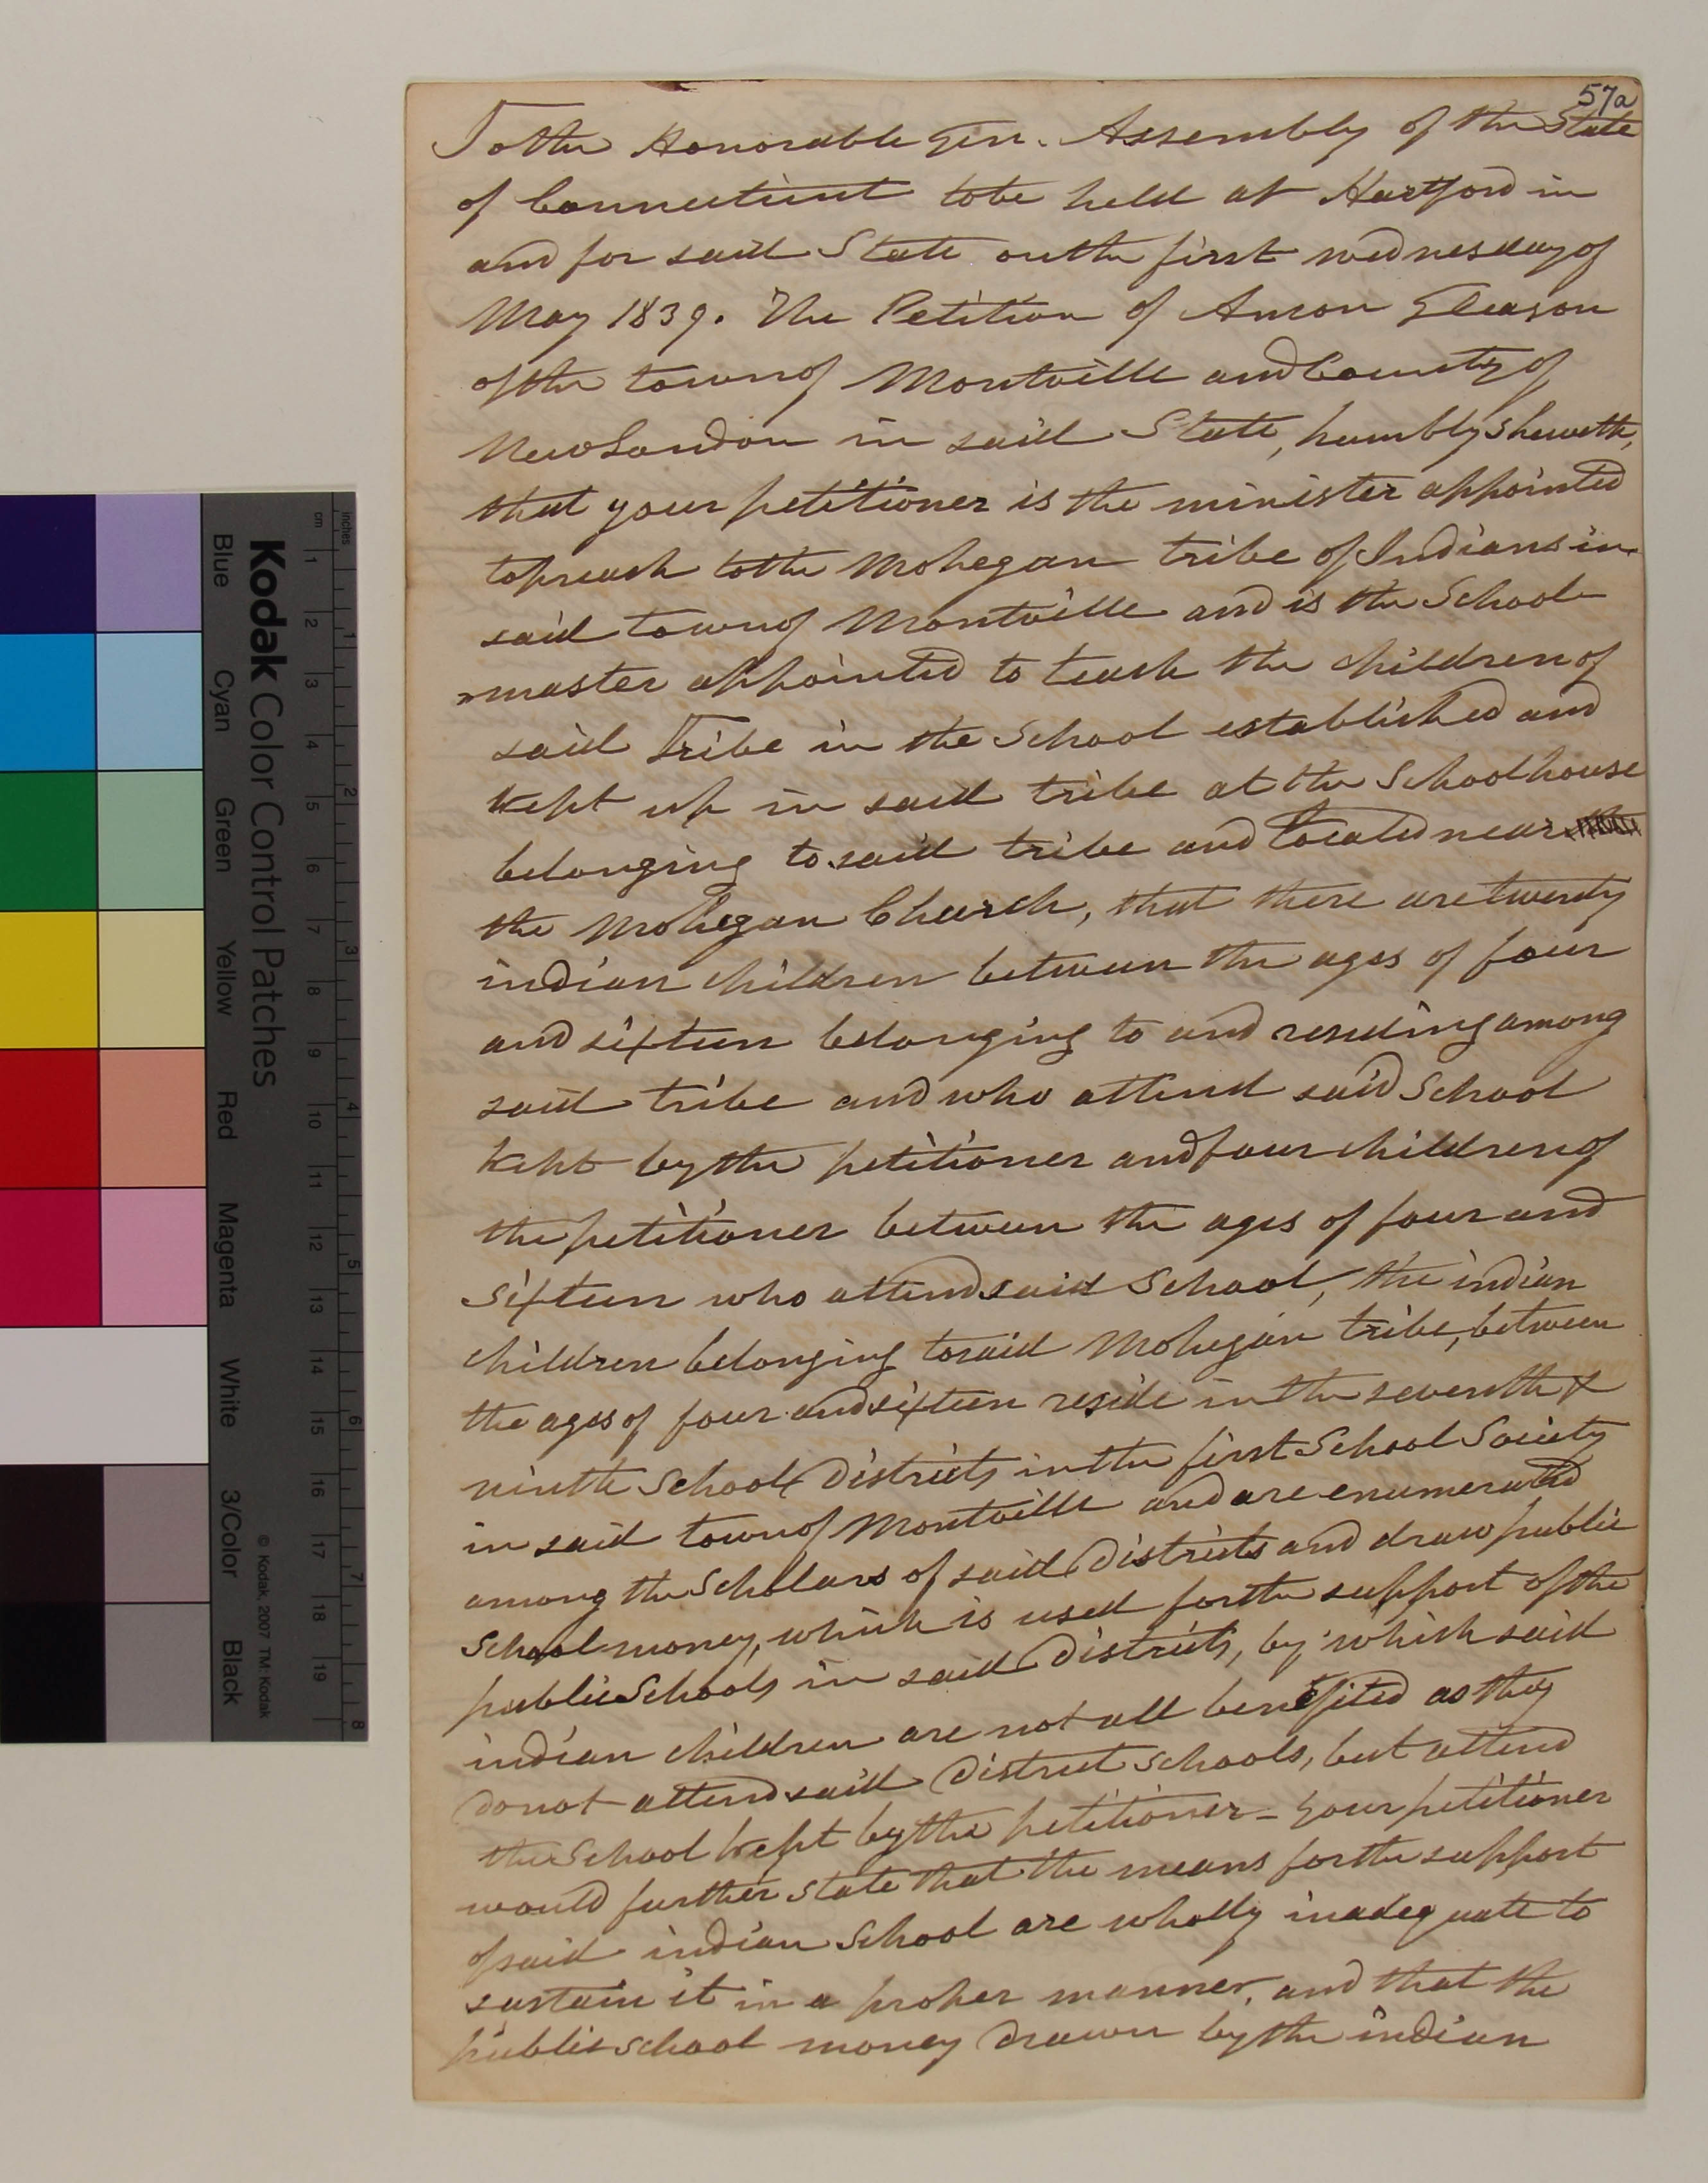 57a
To the Honorable Gen. Assembly of the State
of Connecticut to be held at Hartford in
and for said State on the first wednesday of
May 1839. The Petition of Anson Gleason
of the town of Montville and County of
New London in said State, humbly sheweth,
that your petitioner is the minister appointed
to preach to the Mohegan tribe of Indians in
said town of Montville and is the School
master appointed to teach the children of
said Tribe in the School established and
kept up in said tribe at the Schoolhouse
belonging to said tribe and located near
the Mohegan Church, that there are twenty
indian children between the ages of four
and sixteen belonging to and residing among
said tribe and who attend said School
kept by the petitioner and four children of
the petitioner between the ages of four and
sixteen who attend said School, the indian
children belonging to said Mohegan tribe, between
the ages of four and sixteen reside in the seventh &
ninth School Districts in the first School Society
in said town of Montville and are enumerated
among the Schollars of said Districts and draw public
School money, which is used for the support of the
public Schools in said Districts, by which said
indian children are not all benefited as they
do not attend said District Schools, but attend
the School kept by the petitioner - your petitioner
would further state that the means for the support
of said indian School are wholly inadequate to
sustain it in a proper manner, and that the
public school money drawn by the indian
Kodak Color Control Patches
Blue Cyan Green Yellow Red Magenta White 3/Color Black
© Kodak, 2007 TM: Kodak
cm 1 2 3 4 5 6 7 8 9 10 11 12 13 14 15 16 17 18 19
inches 1 2 3 4 5 6 7 8